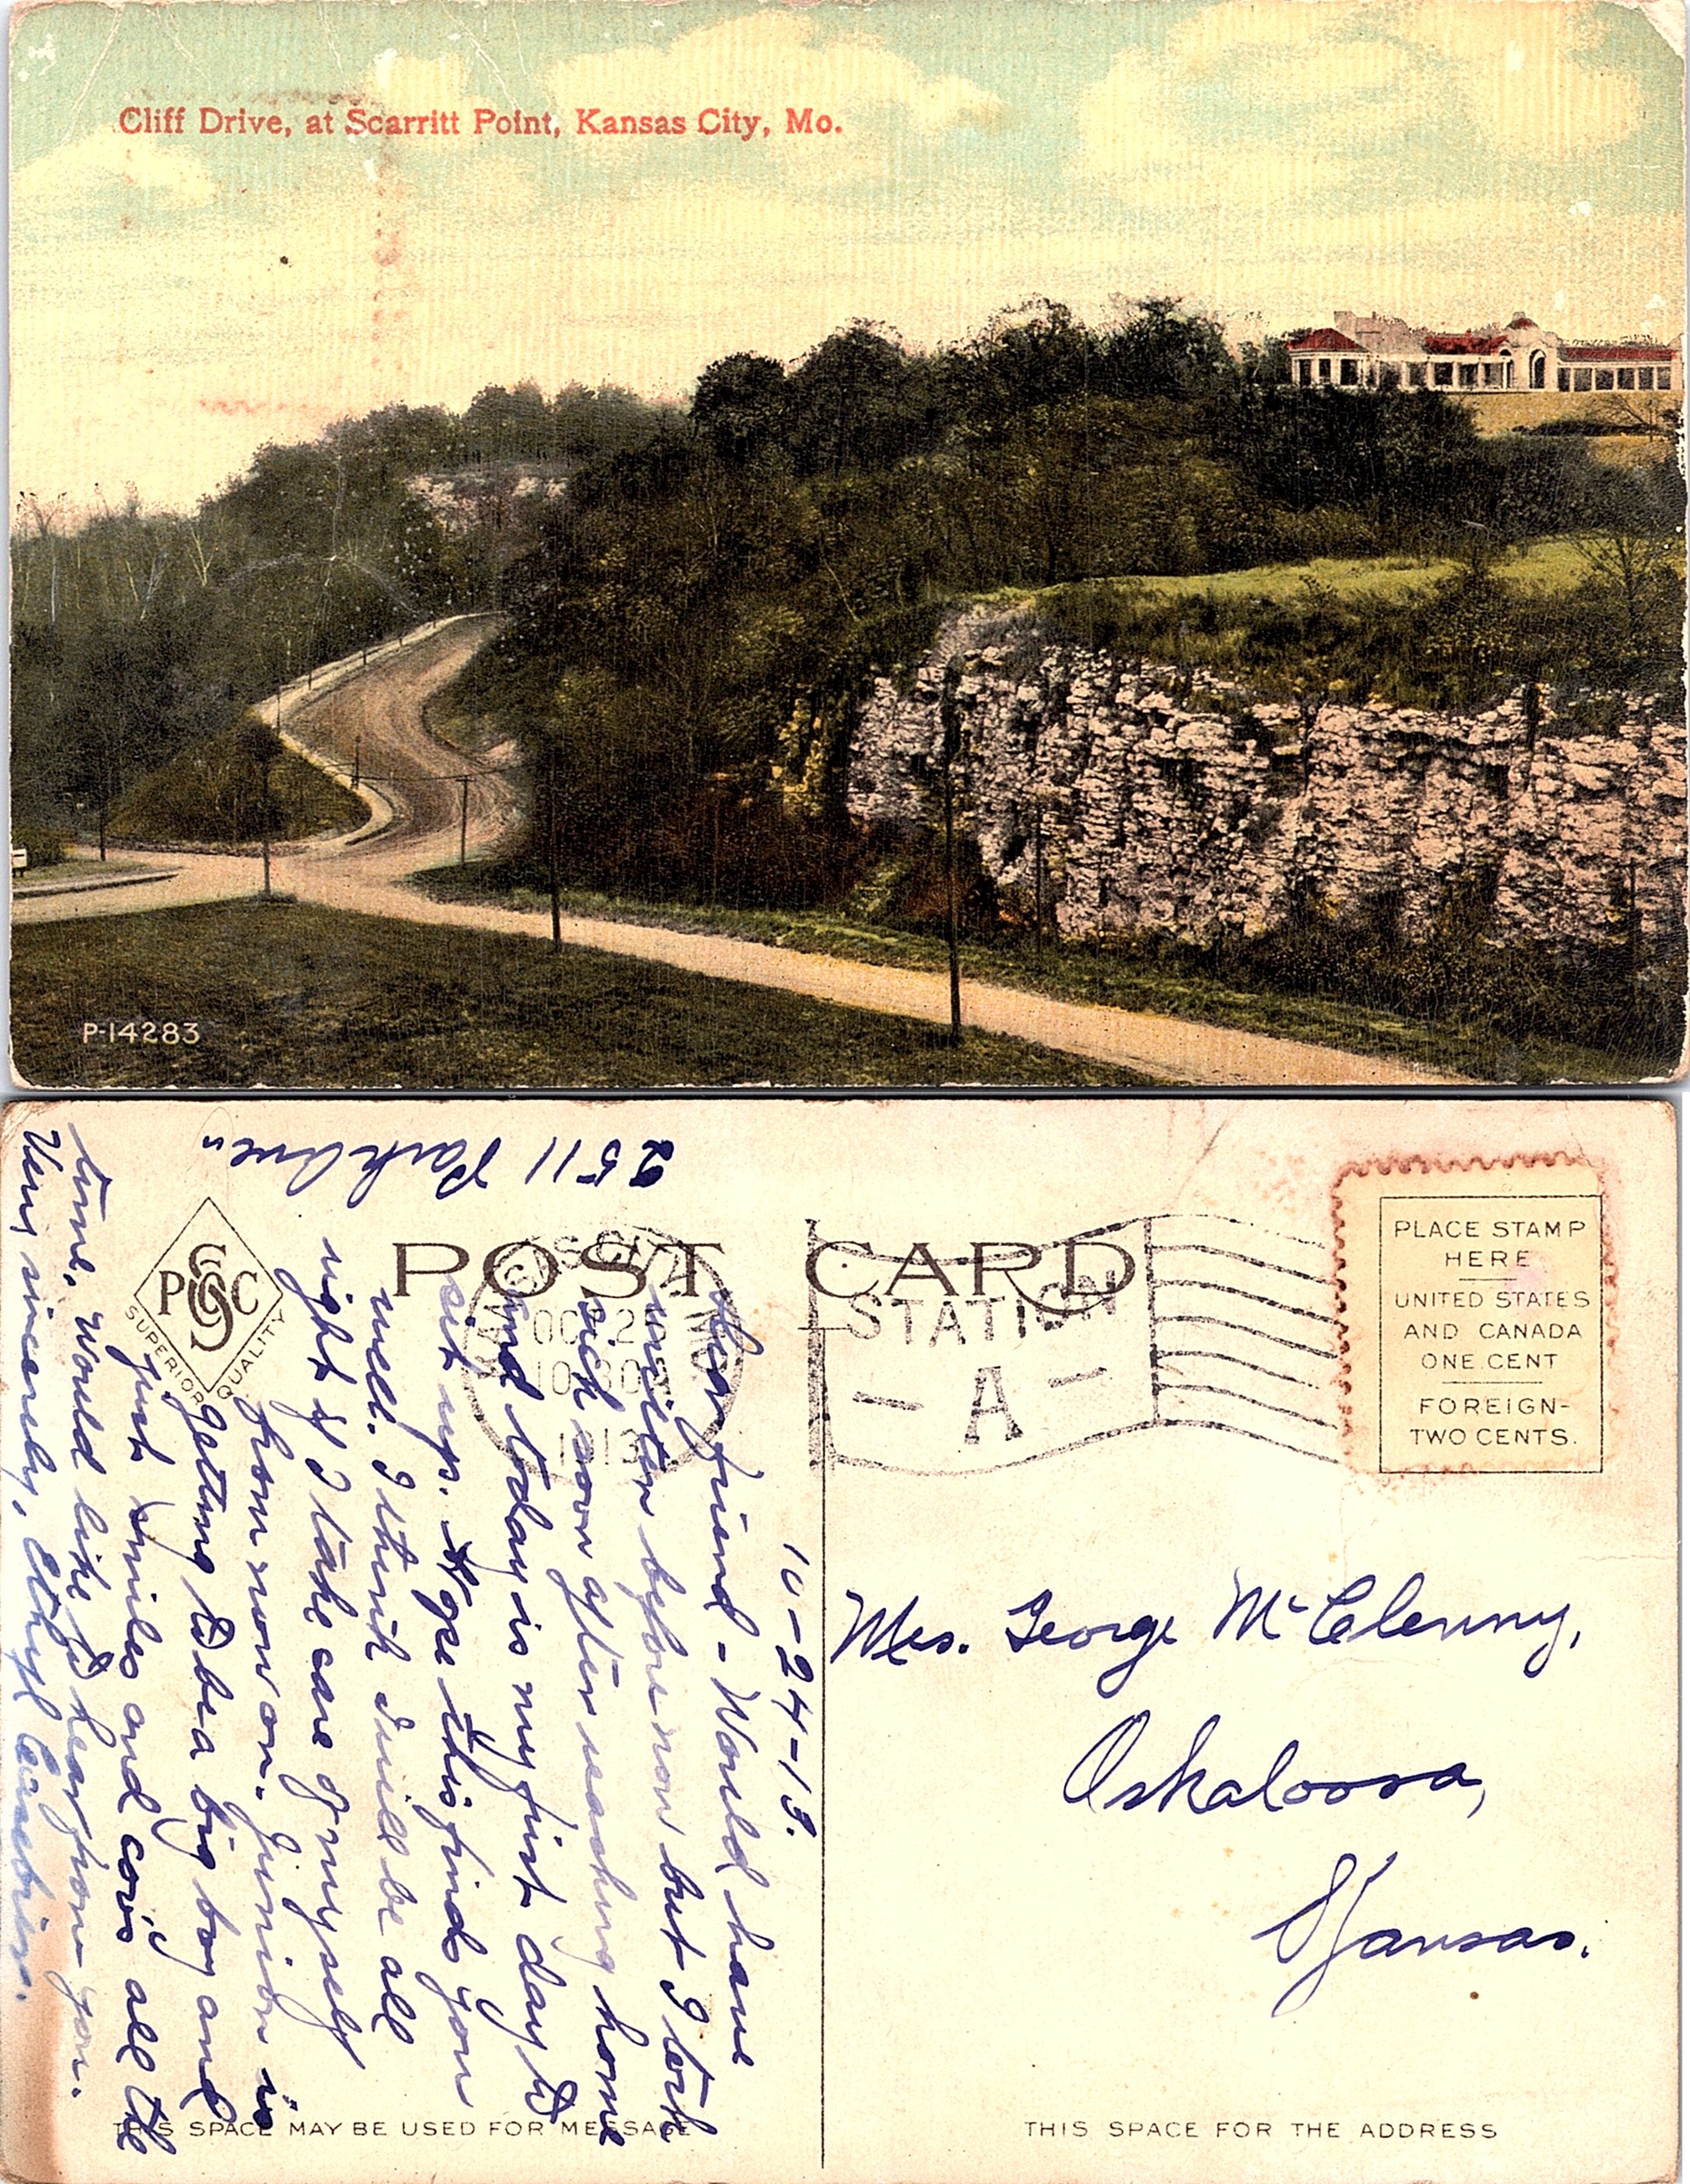 Cliff Drive, at Scarritt Point, Kansas City, Mo.
P-14283
POST CARD
PSC
SUPERIOR QUALITY
KANSAS CITY
OCT 25
10 30
1913
STATION
- A -
PLACE STAMP
HERE
UNITED STATES
AND CANADA
ONE CENT
FOREIGN-
TWO CENTS.
2511 Park Ave.
10-24-13.
Dear friend - Would have
written before now but I took
sick soon after reaching home
and today is my first day to
sit up. Hope this finds you
well. I think I will be all
right if I take care of myself
from now on. Junior is
getting to be a big boy and
just smiles and coo's all the
time. Would like to hear from you.
Very sincerely, Ethyl
Mrs. George McClenny,
Oskaloosa,
Kansas.
THIS SPACE MAY BE USED FOR MESSAGE
THIS SPACE FOR THE ADDRESS